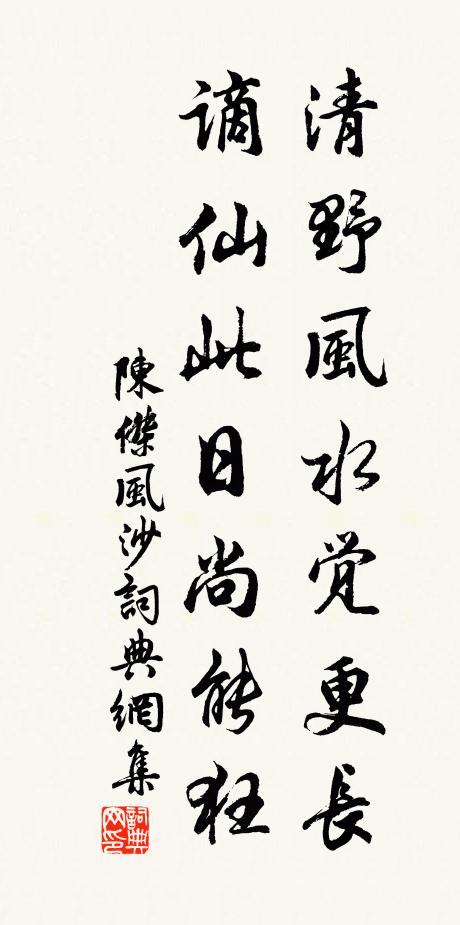 清野風水覚更長
謫仙此日尚能狂
陳傑風沙詞典網集
詞典网印